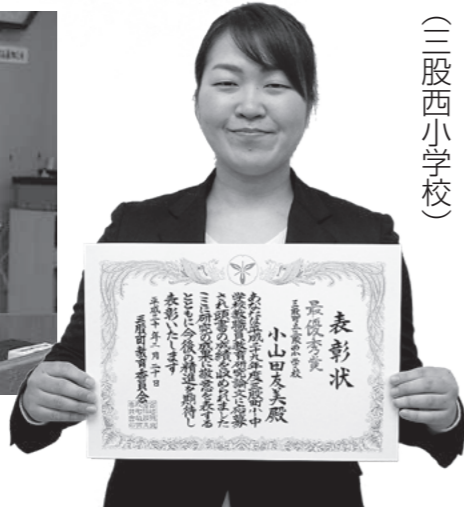 （三股西小学校）
表彰状
最優秀賞
三股町立三股西小学校
小山田友美殿
あなたは平成二十九年度三股町小中
学校教職員教育研究論文に応募
され頭書の成績を認められました
ここに研究の成果に敬意を表する
とともに今後の精進を期待し
表彰いたします
平成三十年一月二十日
三股町教育委員会